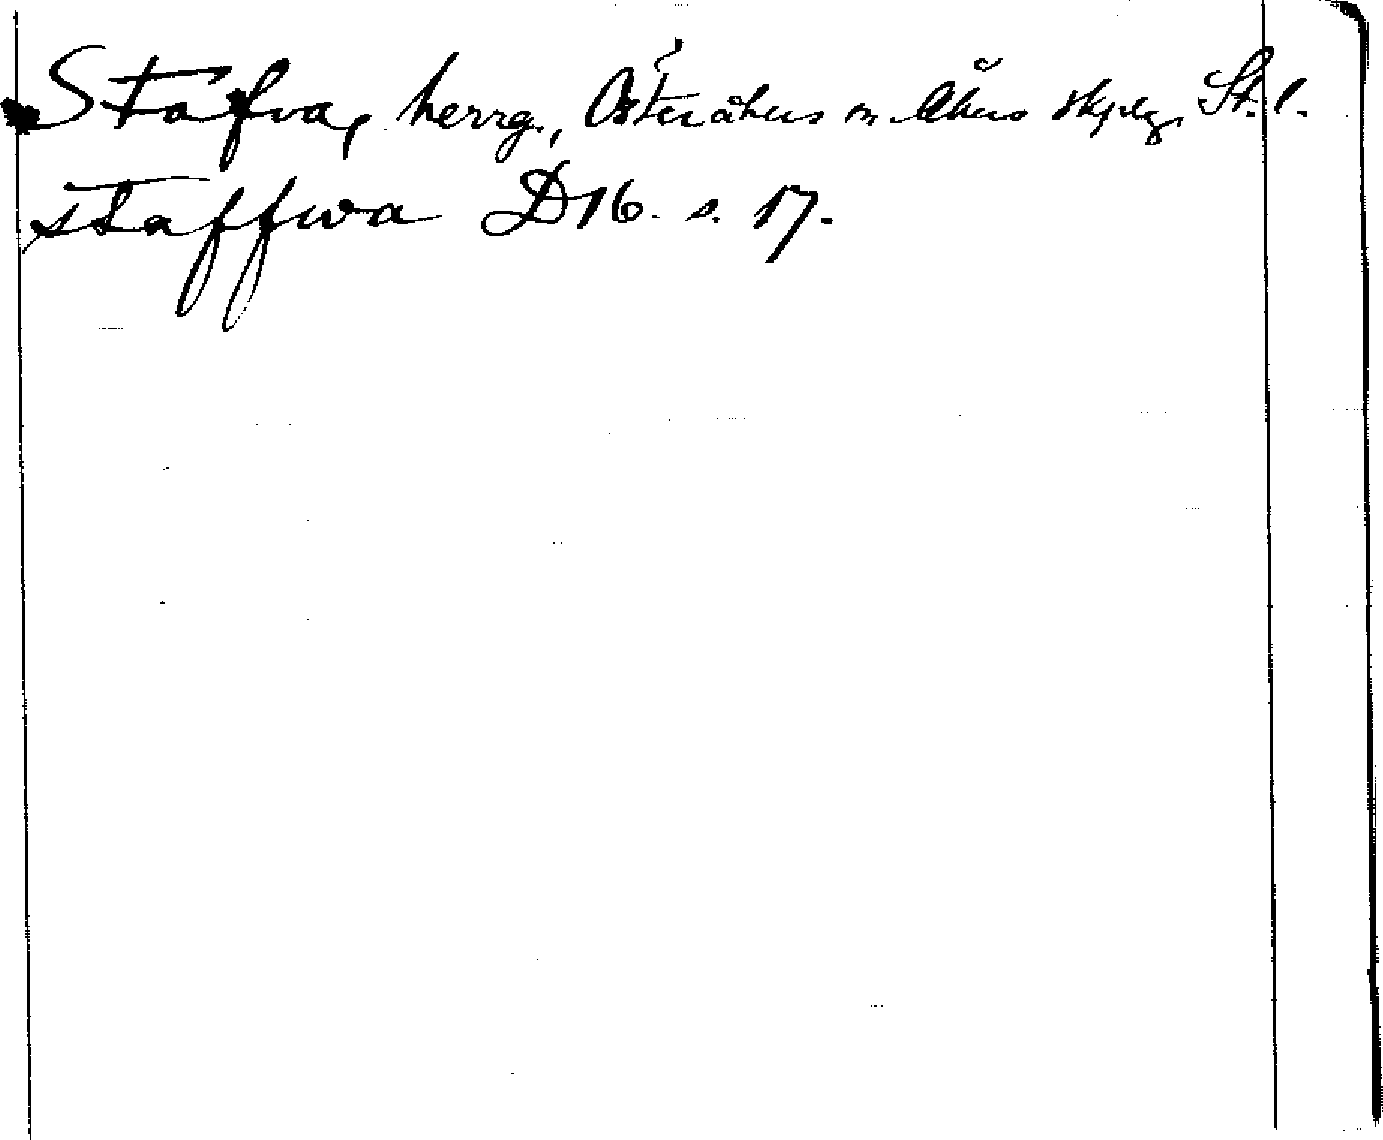 Stafva, herrg., Österåkers o. Åkers skplg, St. l.
staffwa D16. s. 17.